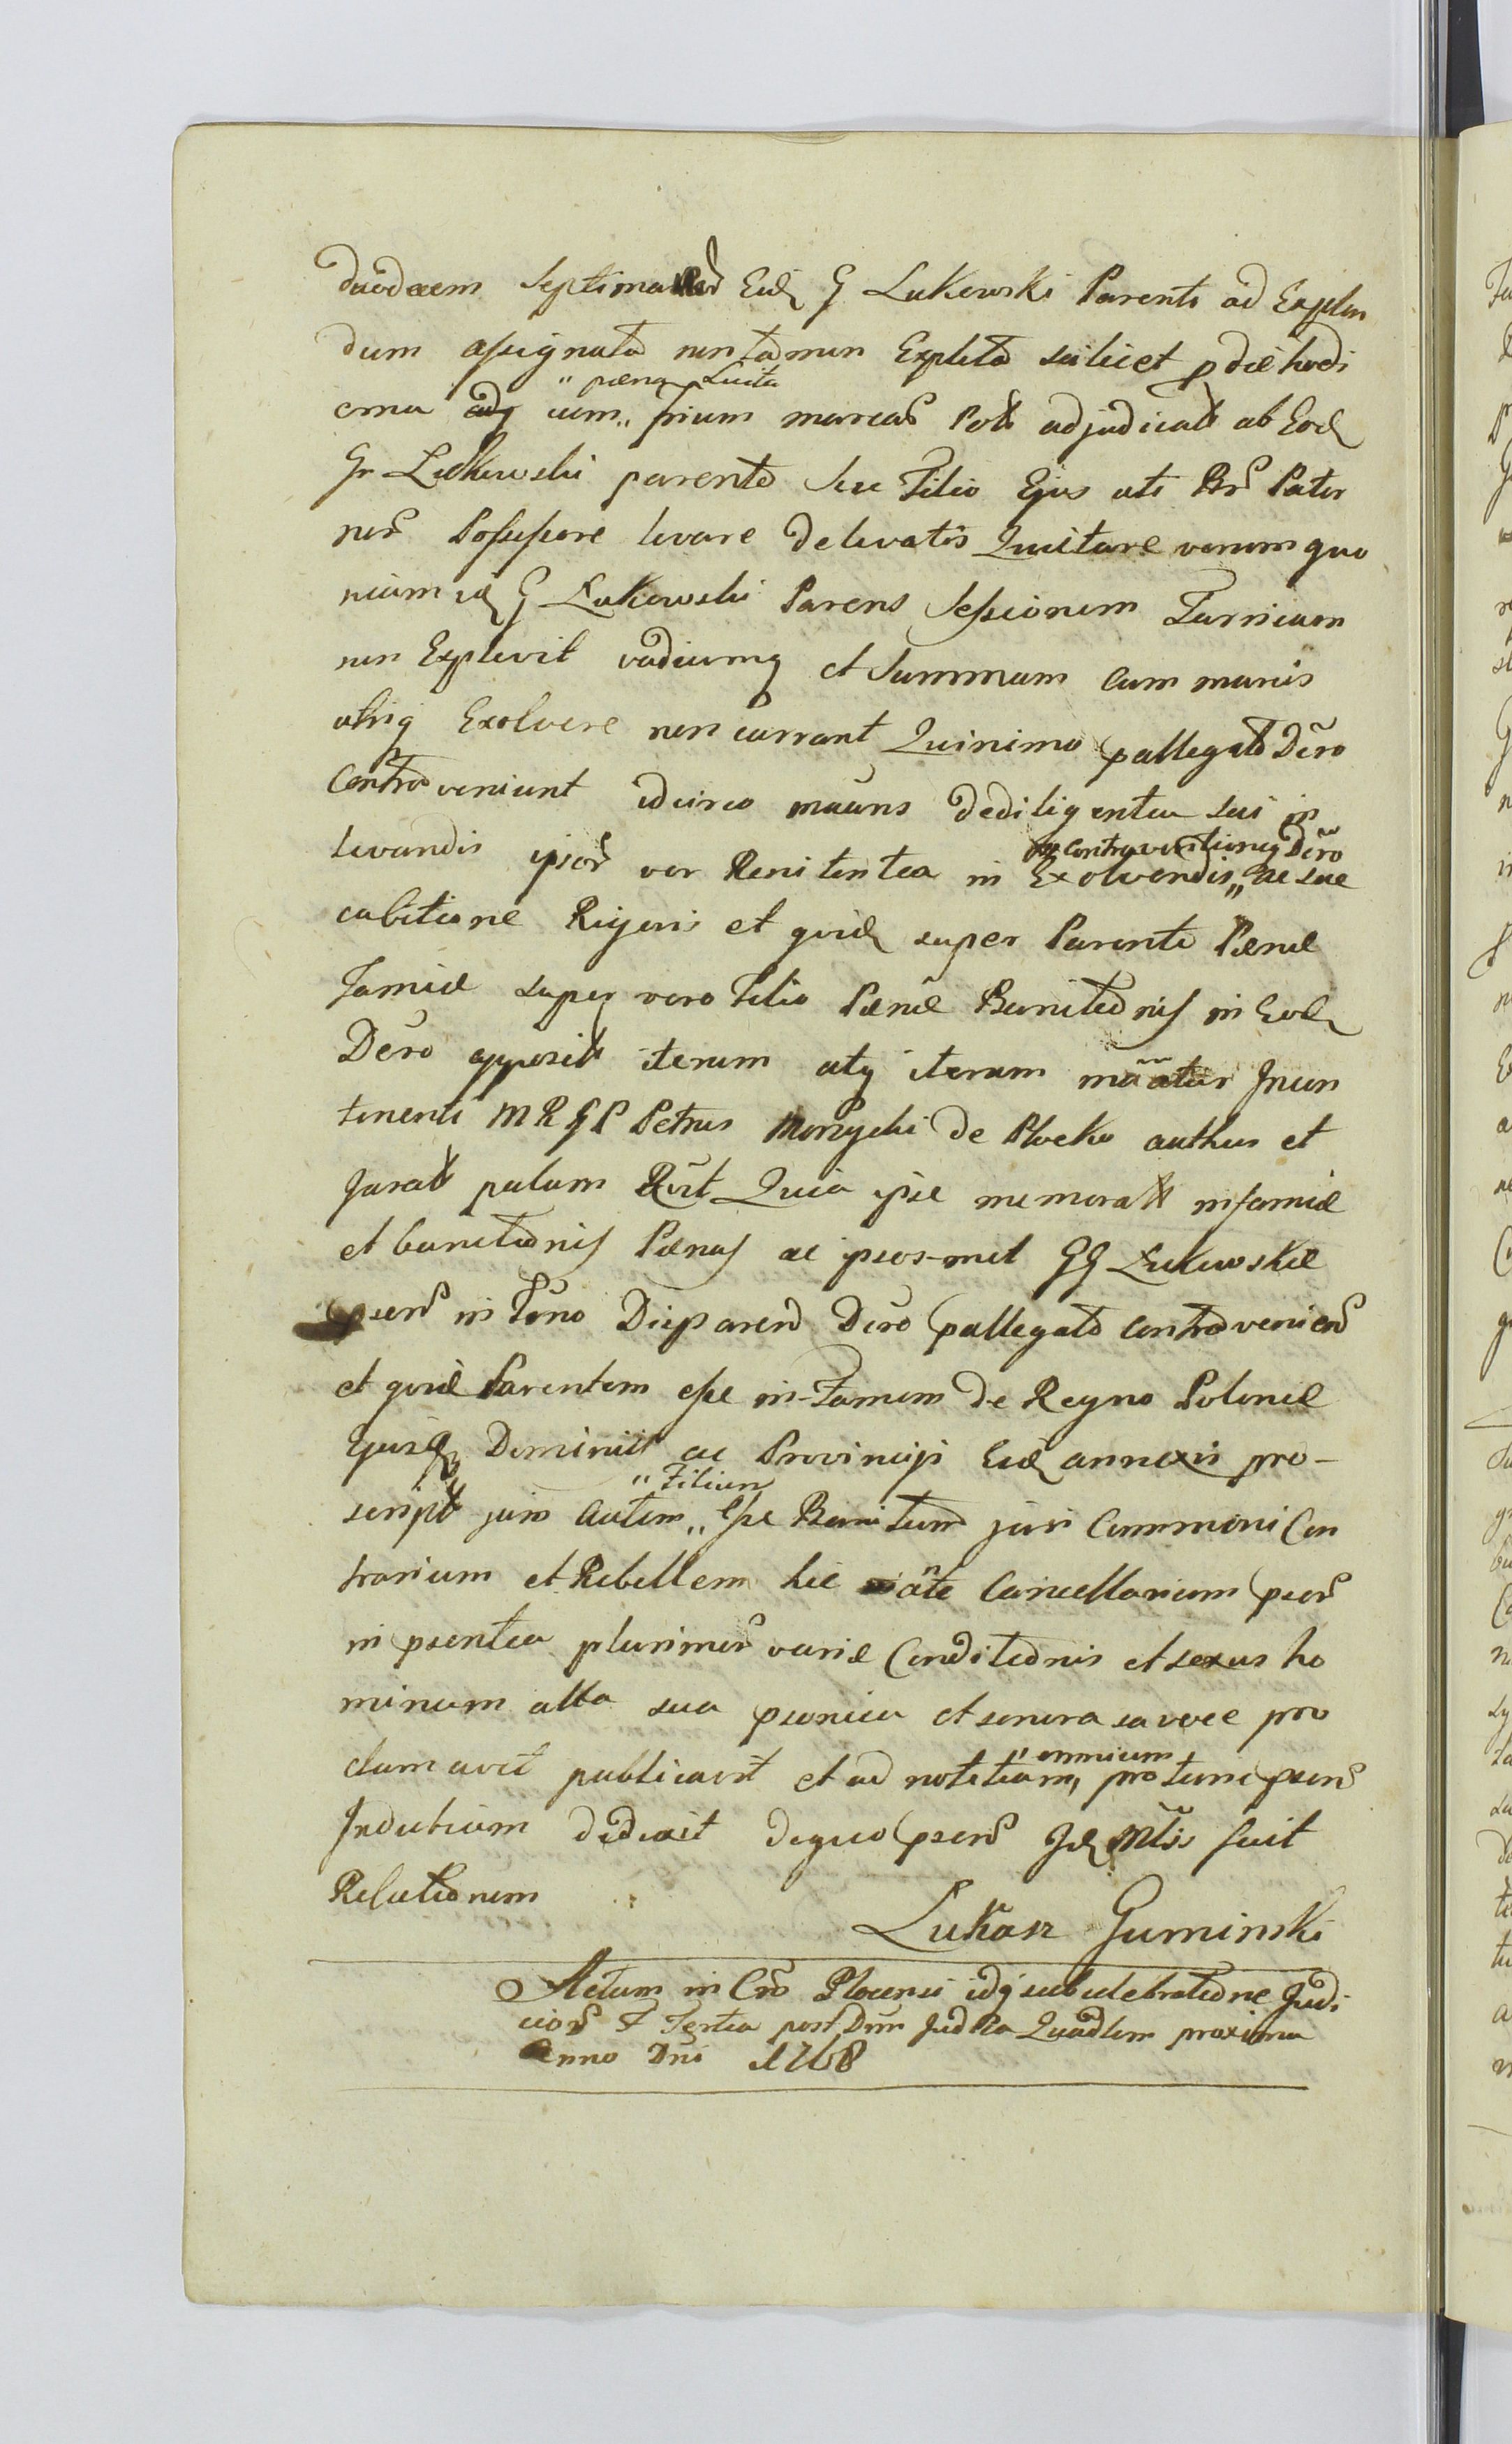 duodecem Septimanar Eid G Lukowski Parenti ad Explen
dum assignata non tamen Expleta scilicet p die hodi
erna adq cum „ trium marcas Pol adjudicat ab Eod
„ pæna Luita
Gr Lukowski parente seu Filio Ejus uti Br Pater
nor Possessore levare de levatis Quittare verum quo
niam id G Lukowski Parens Sessionem Turrium
non Explevit vadiumq et Summam cum manis
utriq Exolvere non currant Quinimo pallegato Dcro
Controveniunt idcirco maans de diligentia sui in
levandis ipsor ver Renitentea in Exolvendis „ ac sue
controventioneq Dcro
cubitione Rigoris et quid super Parente Pænæ
famiæ super vero Filio Pænæ Banitionis in Eod
Dcro apposit iterum atq iterum maatur Incon
tinenti M R G P Petrus Morzycki de Plocko authus et
Jurat palam Rcut Quia ipse memorat infamiæ
et banitionis Pænas ac ipsos-met GG Lukowskie
psens in Tmo Disparen Dcro pallegato controvenien
et quid Parentem esse in-Famem de Regno Poloniæ
Ejusq Dominiis ac Provincijs Eid annexis pro-
script jam autem „ Esse Banitum juri Communi Con
„ Filium
trarium et Rebellem hic ante Cancellariam psen
in psentia plurimor variæ Conditionis et sexus ho
minum alta sua psonica et sonora sa voce pro
clamavit publicavit et ad notitiam „ pro tunc psen
„ omnium
Indubium deduxit de quo psens Id Mtlis fecit
Relationem
Lukasz Guminski
Actum in Cro Plocensi idq sub celebratione Judi
cior F Tertia post Dnm Judica Quadlem proxima
Anno Dni 1768